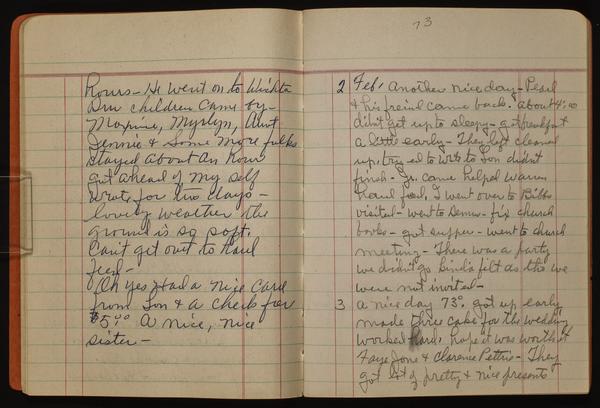 hours - He went on to Wichita
Our children came by -
Maxine, Myrlyn, Aunt
Jennie & Some more folks
stayed about an hour
got ahead of my self
wrote for two days -
lovely weather the
ground is so soft.
Can't get out to haul
feed -
Oh yes Had a nice card
from Lon & a check for
$5.00 A nice, nice
sister -
73
2 Feb, Another nice day - Pearl
& his freind came back. about 4:00
didn't get up to sleepy - got breakfast
a little early - They left cleaned
up, tryed to write to Lon didn't
finish - Jr. came helped Warren
haul feed, I went over to Bibbs
visited - went to - fix church
books - got supper - went to church
meeting - There was a party
we didn't go kinda felt as tho we
were not invited -
3 a nice day 73°, got up early
made three cake for the wedding
worked hard, hope it was worth it
Faye Jone & Clarence Pettis - They
got lot of pretty & nice presents